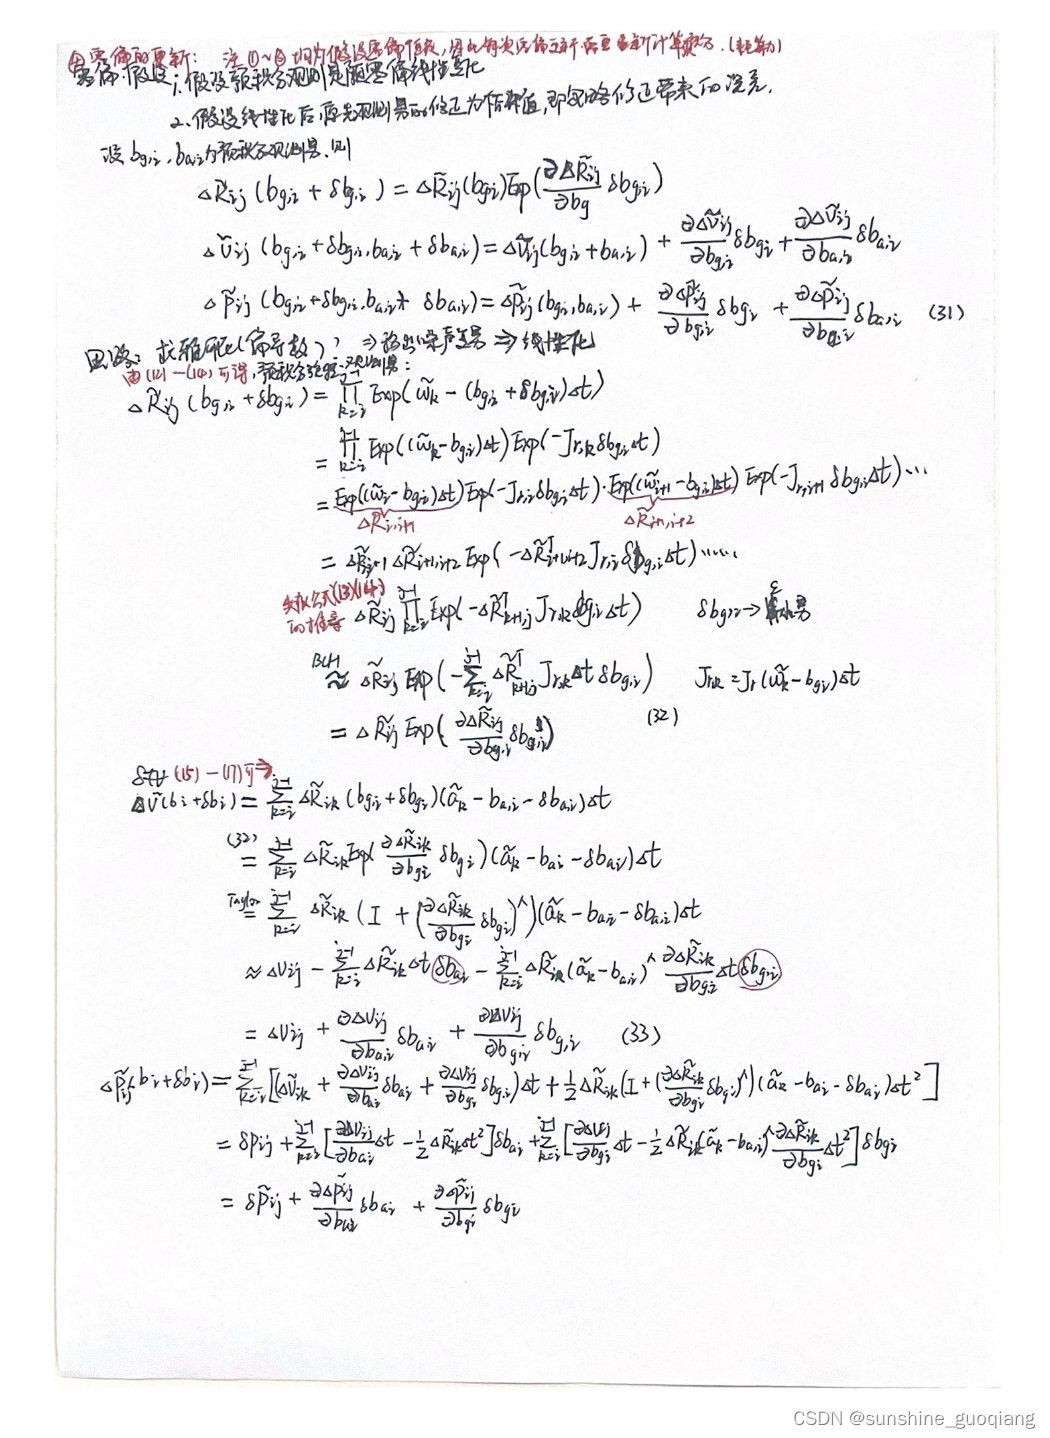 ④零偏的更新: 注①~③均为假设零偏恒定,因此每次零偏更新后要重新计算积分.(耗算力)
零偏假设:1.假设预积分观测是随零偏线性变化
2.假设线性化后,原先观测量的修正为估计值,即忽略修正带来的误差.
设 b_{g,i}, b_{a,i}为预积分观测量,则
Δ\tilde{R}_{ij}(b_{g,i} + δb_{g,i}) = Δ\tilde{R}_{ij}(b_{g,i})Exp(\frac{∂Δ\tilde{R}_{ij}}{∂b_g} δb_{g,i})
Δ\tilde{v}_{ij}(b_{g,i} + δb_{g,i}, b_{a,i} + δb_{a,i}) = Δ\tilde{v}_{ij}(b_{g,i} + b_{a,i}) + \frac{∂Δ\tilde{v}_{ij}}{∂b_{g,i}} δb_{g,i} + \frac{∂Δ\tilde{v}_{ij}}{∂b_{a,i}} δb_{a,i}
Δ\tilde{p}_{ij}(b_{g,i} + δb_{g,i}, b_{a,i} + δb_{a,i}) = Δ\tilde{p}_{ij}(b_{g,i}, b_{a,i}) + \frac{∂Δ\tilde{p}_{ij}}{∂b_{g,i}} δb_{g,i} + \frac{∂Δ\tilde{p}_{ij}}{∂b_{g,i}} δb_{a,i} (31)
思路: 求雅可比(偏导数) ⇒ ⇒ 线性化
由(12)-(14)可得,预积分 观测量:
Δ\tilde{R}_{ij}(b_{g,i} + δb_{g,i}) = ∏_{k=i}^{j-1} Exp(\tilde{ω}_k - (b_{g,i} + δb_{g,i})Δt)
= ∏_{k=i}^{j-1} Exp((\tilde{ω}_k - b_{g,i})Δt) Exp(-J_{r,k} δb_{g,i} Δt)
= Exp((\tilde{ω}_i - b_{g,i})Δt) Exp(-J_{r,i} δb_{g,i} Δt)·Exp((\tilde{ω}_{i+1} - b_{g,i})Δt) Exp(-J_{r,i+1} δb_{g,i} Δt)···
Δ\tilde{R}_{i,i+1} Δ\tilde{R}_{i+1,i+2}
= Δ\tilde{R}_{i,i+1} Δ\tilde{R}_{i+1,i+2} Exp(-Δ\tilde{R}^T_{i+1,i+2} J_{r,i} δb_{g,i} Δt)······
类似公式(13)(14)的推导 Δ\tilde{R}_{ij} ∏_{k=i}^{j-1} Exp(-Δ\tilde{R}^T_{k+1,j} J_{r,k} δb_{g,i} Δt) δb_{g,i} →
\overset{BCH}{≈} Δ\tilde{R}_{ij} Exp(-∑_{k=i}^{j-1} Δ\tilde{R}^T_{k+1,j} J_{r,k} Δt δb_{g,i}) J_{r,k} = J_r(\tilde{ω}_k - b_{g,i})Δt
= Δ\tilde{R}_{ij} Exp(\frac{∂Δ\tilde{R}_{ij}}{∂b_{g,i}} δb_{g,i}) (32)
(15)-(17)可⇒
Δ\tilde{v}(b_i + δb_i) = ∑_{k=i}^{j-1} Δ\tilde{R}_{ik}(b_{g,i} + δb_{g,i})(\tilde{a}_k - b_{a,i} - δb_{a,i})Δt
\overset{(32)}{=} ∑_{k=i}^{j-1} Δ\tilde{R}_{ik} Exp(\frac{∂Δ\tilde{R}_{ik}}{∂b_{g,i}} δb_{g,i})(\tilde{a}_k - b_{a,i} - δb_{a,i})Δt
\overset{Taylor}{=} ∑_{k=i}^{j-1} Δ\tilde{R}_{ik}(I + (\frac{∂Δ\tilde{R}_{ik}}{∂b_{g,i}} δb_{g,i})^∧)(\tilde{a}_k - b_{a,i} - δb_{a,i})Δt
≈ Δv_{ij} - ∑_{k=i}^{j-1} Δ\tilde{R}_{ik} Δt δb_{a,i} - ∑_{k=i}^{j-1} Δ\tilde{R}_{ik}(\tilde{a}_k - b_{a,i})^∧ \frac{∂Δ\tilde{R}_{ik}}{∂b_{g,i}} Δt δb_{g,i}
= Δv_{ij} + \frac{∂Δv_{ij}}{∂b_{a,i}} δb_{a,i} + \frac{∂Δv_{ij}}{∂b_{g,i}} δb_{g,i} (33)
Δ\tilde{p}_{ij}(b_i + δb_i) = ∑_{k=i}^{j-1} [(Δ\tilde{v}_{ik} + \frac{∂Δv_{ij}}{∂b_{a,i}} δb_{a,i} + \frac{∂Δv_{ij}}{∂b_{g,i}} δb_{g,i})Δt + \frac{1}{2} Δ\tilde{R}_{ik}(I + (\frac{∂Δ\tilde{R}_{ik}}{∂b_{g,i}} δb_{g,i})^∧)(\tilde{a}_k - b_{a,i} - δb_{a,i})Δt^2]
= δp_{ij} + ∑_{k=i}^{j-1} [\frac{∂Δv_{ij}}{∂b_{a,i}} Δt - \frac{1}{2} Δ\tilde{R}_{ik} Δt^2] δb_{a,i} + ∑_{k=i}^{j-1} [\frac{∂Δv_{ij}}{∂b_{g,i}} Δt - \frac{1}{2} Δ\tilde{R}_{ik}(\tilde{a}_k - b_{a,i})^∧ \frac{∂Δ\tilde{R}_{ik}}{∂b_{g,i}} Δt^2] δb_{g,i}
= δ\tilde{p}_{ij} + \frac{∂Δ\tilde{p}_{ij}}{∂b_{a,i}} δb_{a,i} + \frac{∂Δ\tilde{p}_{ij}}{∂b_{g,i}} δb_{g,i}
CSDN @sunshine_guoqiang